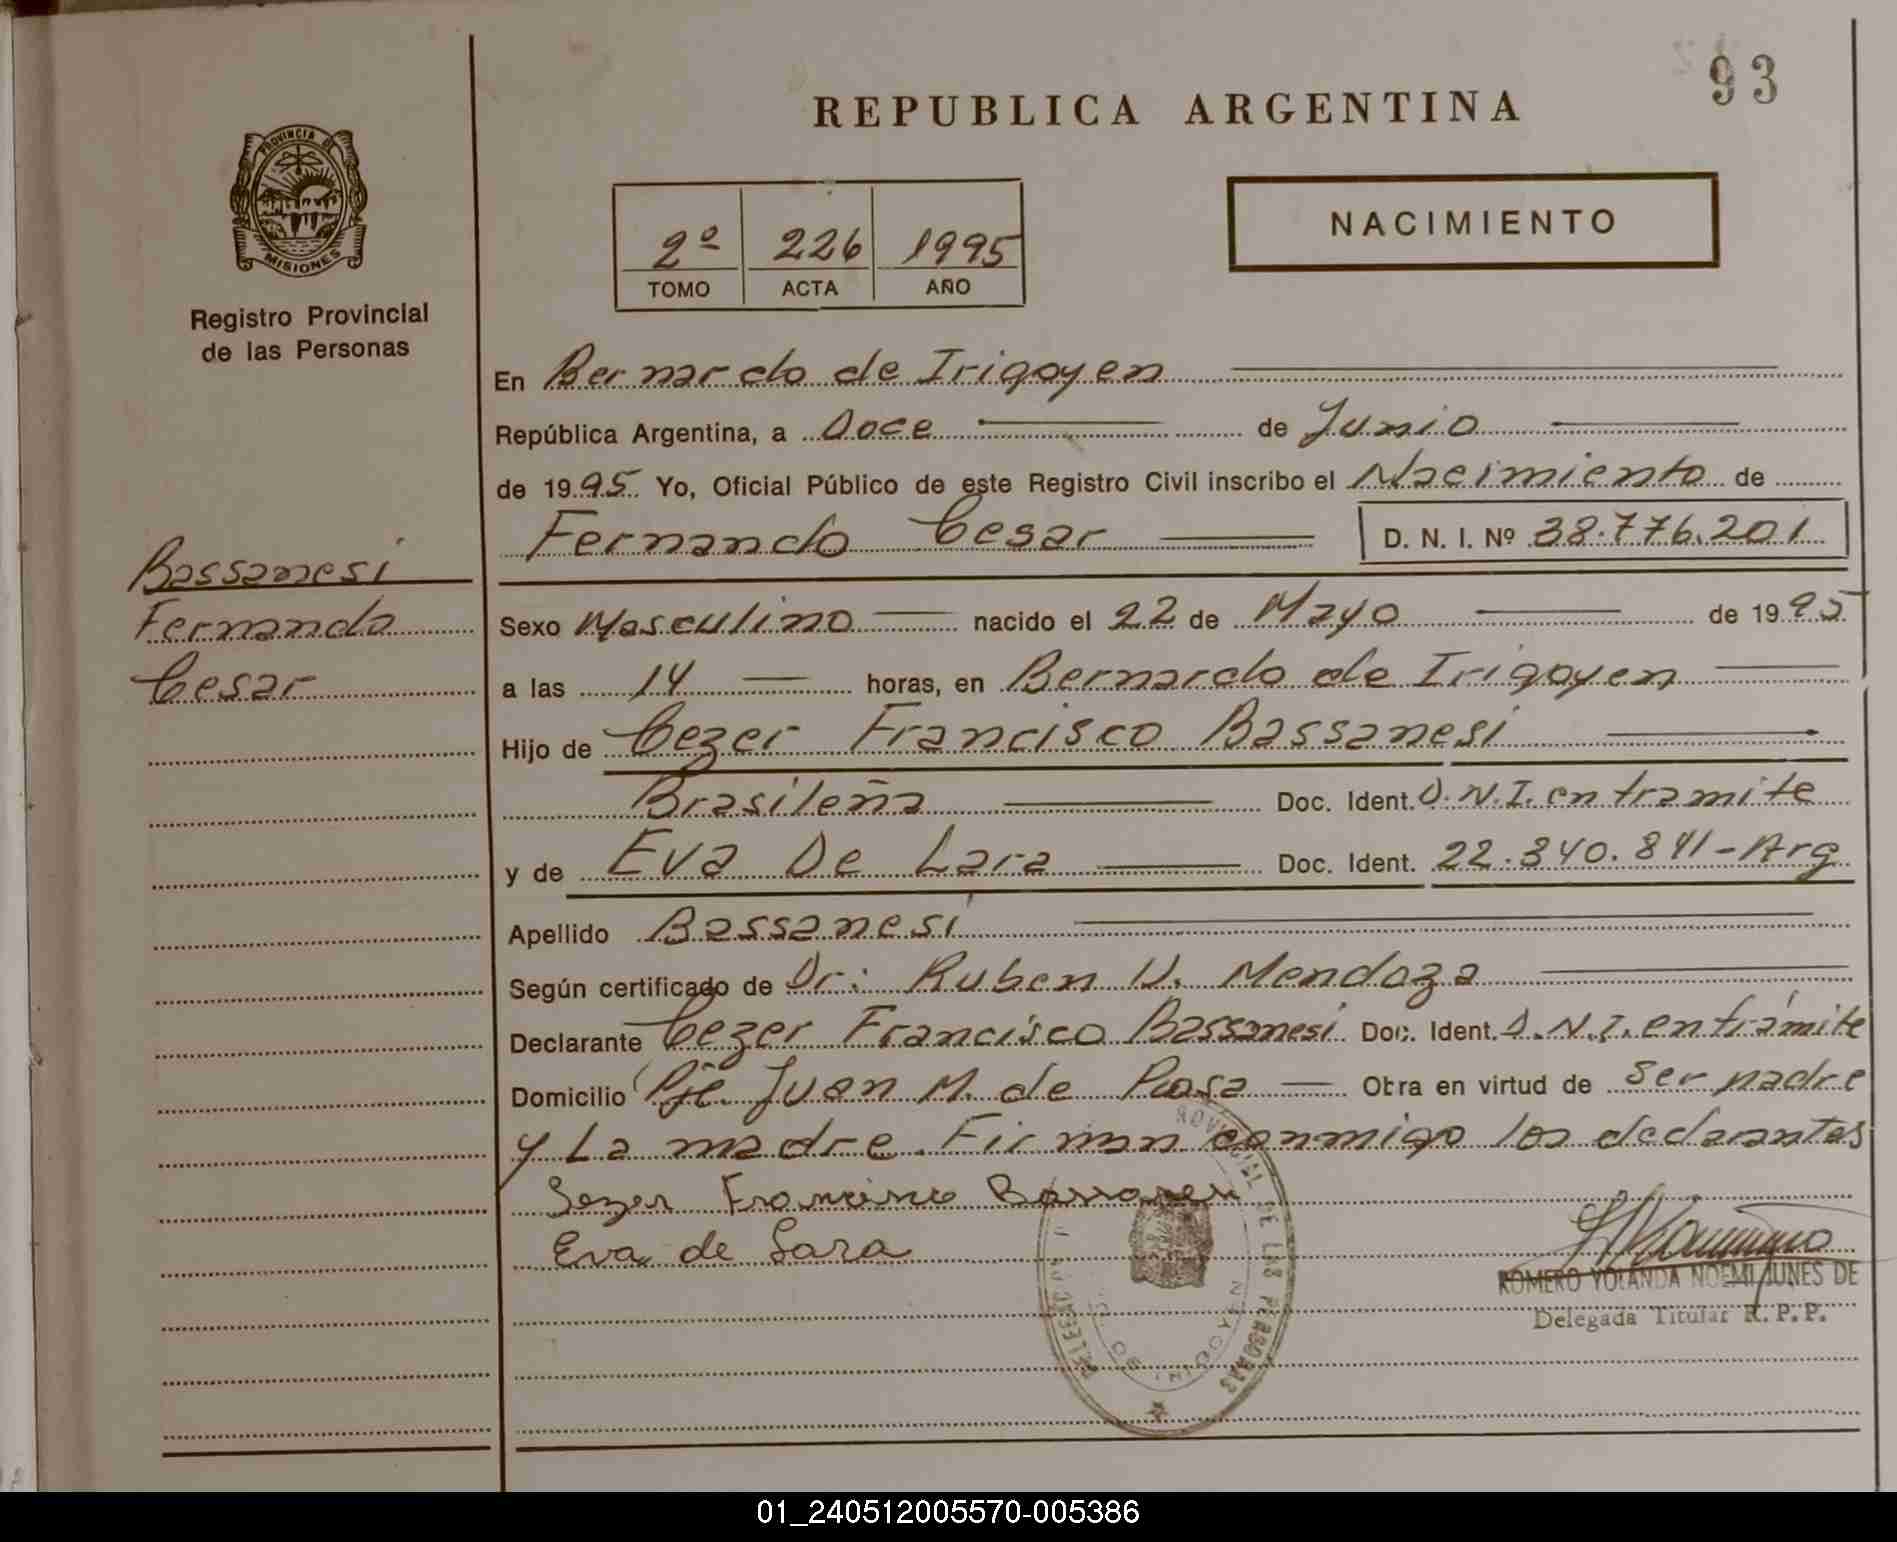 93
REPUBLICA ARGENTINA
PROVINCIA DE
MISIONES
Registro Provincial
de las Personas
2º 226 1995
TOMO ACTA AÑO
NACIMIENTO
En Bernardo de Irigoyen
República Argentina, a Doce de Junio
de 1995 Yo, Oficial Público de este Registro Civil inscribo el Nacimiento de
Fernando Cesar D. N. I. Nº 38.776.201
Bassanesi
Fernando
Cesar
Sexo Masculino nacido el 22 de Mayo de 1995
a las 14 horas, en Bernardo de Irigoyen
Hijo de Cezer Francisco Bassanesi
Brasileña Doc. Ident. D.N.I. en tramite
y de Eva De Lara Doc. Ident. 22.340.841-Arg
Apellido Bassanesi
Según certificado de Dr: Ruben D. Mendoza
Declarante Cezer Francisco Bassanesi Doc. Ident. D.N.I. en trámite
Domicilio Pje. Juan M. de Rosa Obra en virtud de ser padre
y La madre. Firman conmigo los declarantes
Sezer Francisco Bassanesi
Eva de Lara
ROMERO YOLANDA NOEMI JUNES DE
Delegada Titular R.P.P.
DE LAS PERSONAS
01_240512005570-005386